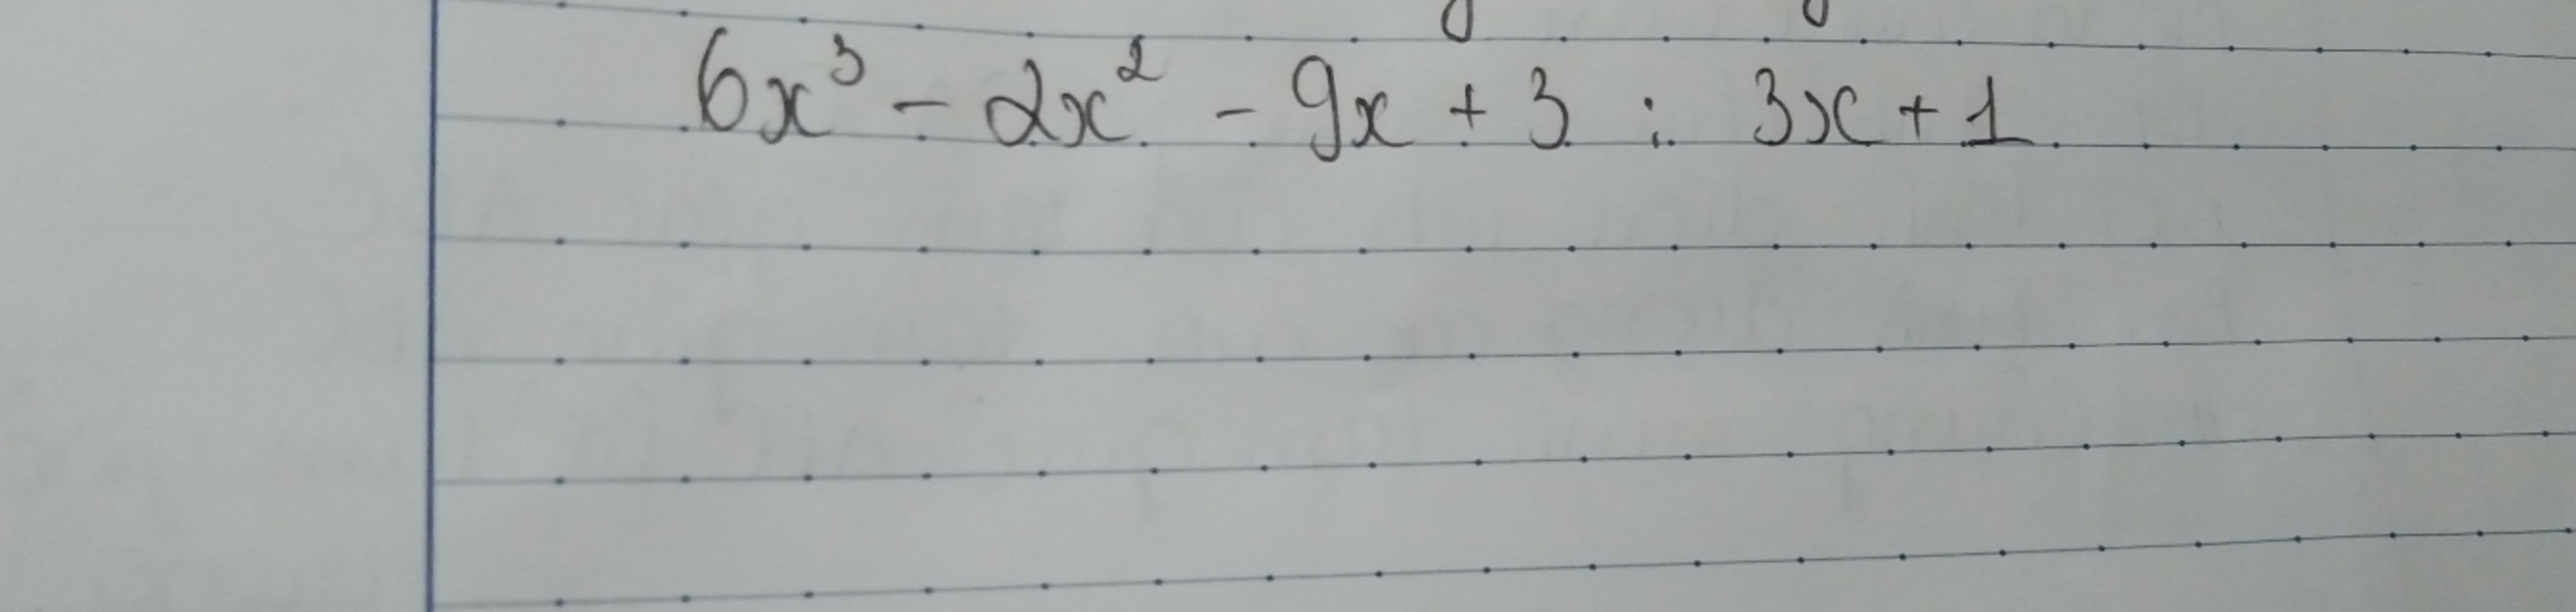 6x³ - 2x² - 9x + 3 : 3x + 1